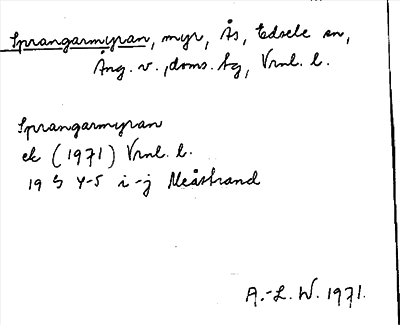 Sprangarmyran, myr, Ås, Edsele sn,
Ång. v., doms. ag, Vrnl. l.
Sprangarmyran
ek (1971) Vrnl. l.
19 G 4-5 i-j Meåstrand
A.-L. W. 1971.